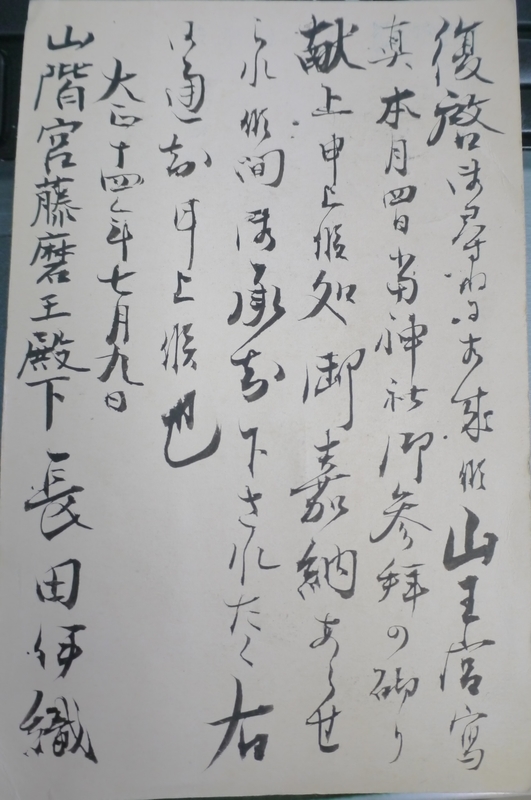 復啓御尋ねに相成候山王宮写
真本月四日当神社御参拝の砌り
献上申上候処御嘉納あらせ
られ候間御承知下されたく右
御通知申上候也
大正十四年七月九日
山階宮藤麿王殿下長田伊織